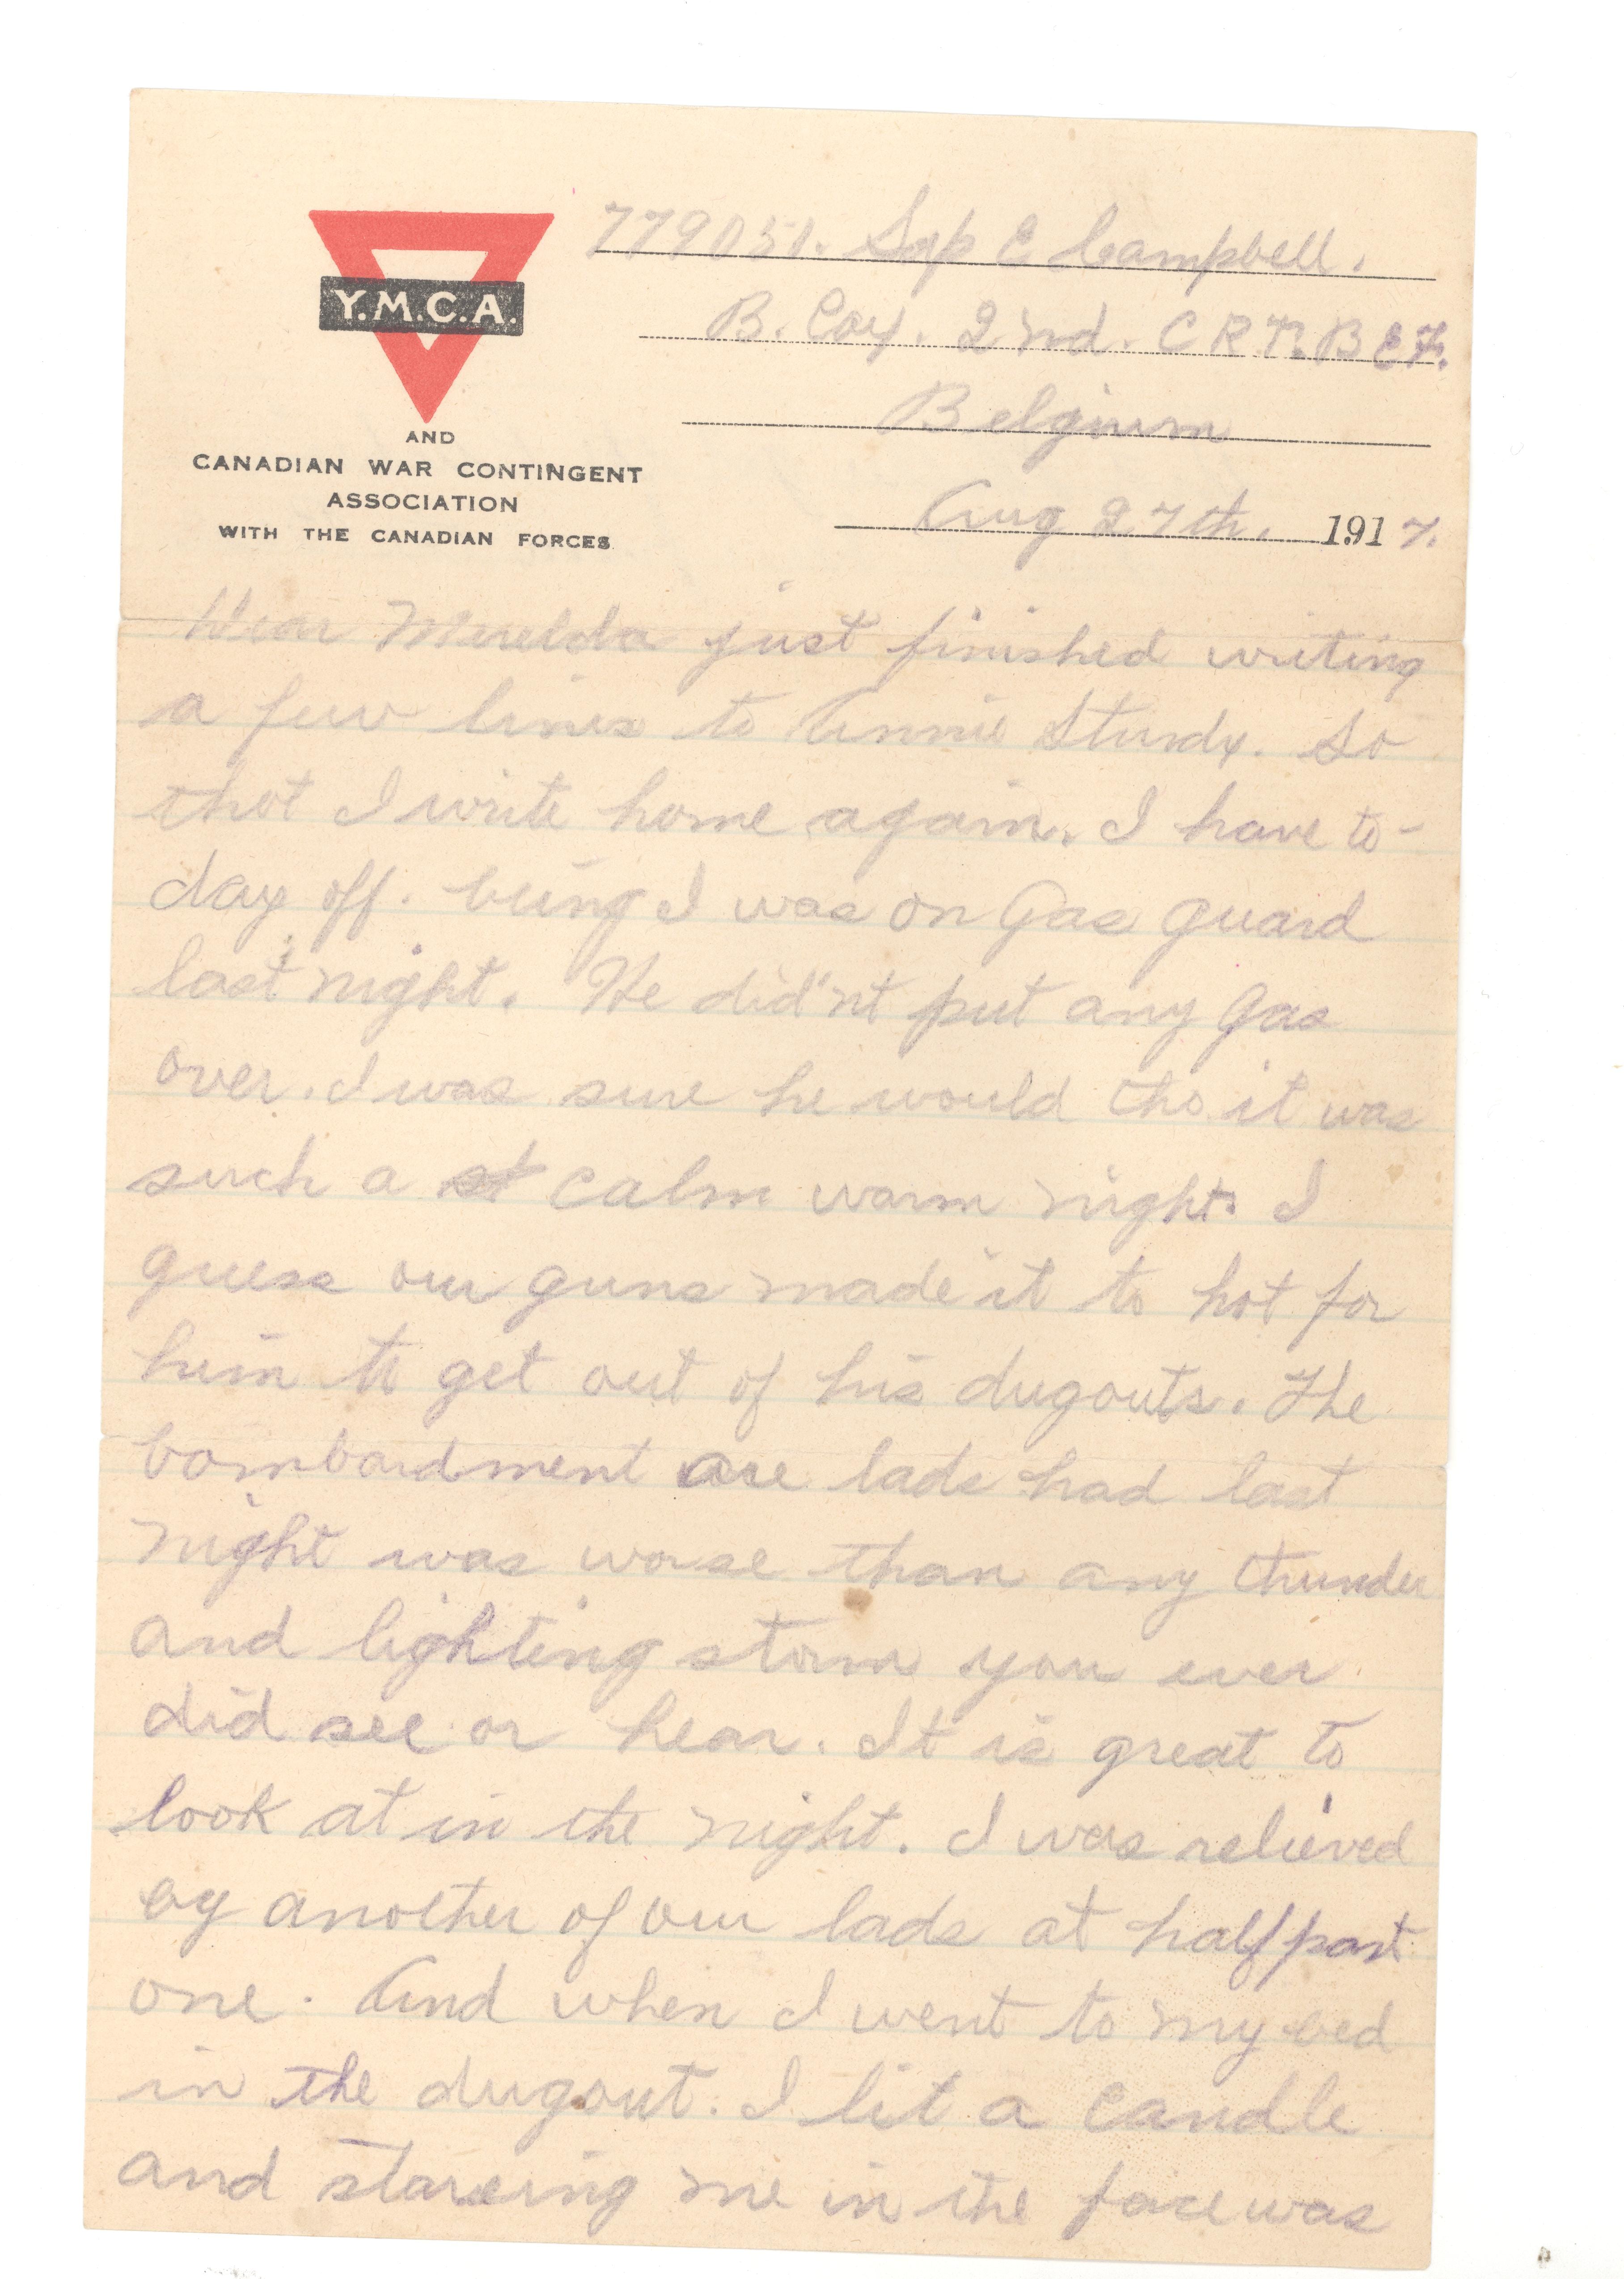 779051. Sap E Campbell.
Y.M.C.A.
B. Coy. 2nd. C R T. B E F.
Belgium
AND
CANADIAN WAR CONTINGENT
ASSOCIATION
WITH THE CANADIAN FORCES
Aug 27th. 1917.
Dear Murelda just finished writing
a few lines to Annie Sturdy. So
thot I write home again. I have to-
day off. being I was on Gas guard
last night. He did'nt put any Gas
over. I was sure he would tho it was
such a st calm warm night. I
guess our guns made it to hot for
him to get out of his dugouts. The
bombardment are lads had last
night was worse than any thunder
and lighting storm you ever
did see or hear. It is great to
look at in the night. I was relieved
by another of our lads at half past
one. And when I went to my bed
in the dugout. I lit a candle
and stareing me in the face was